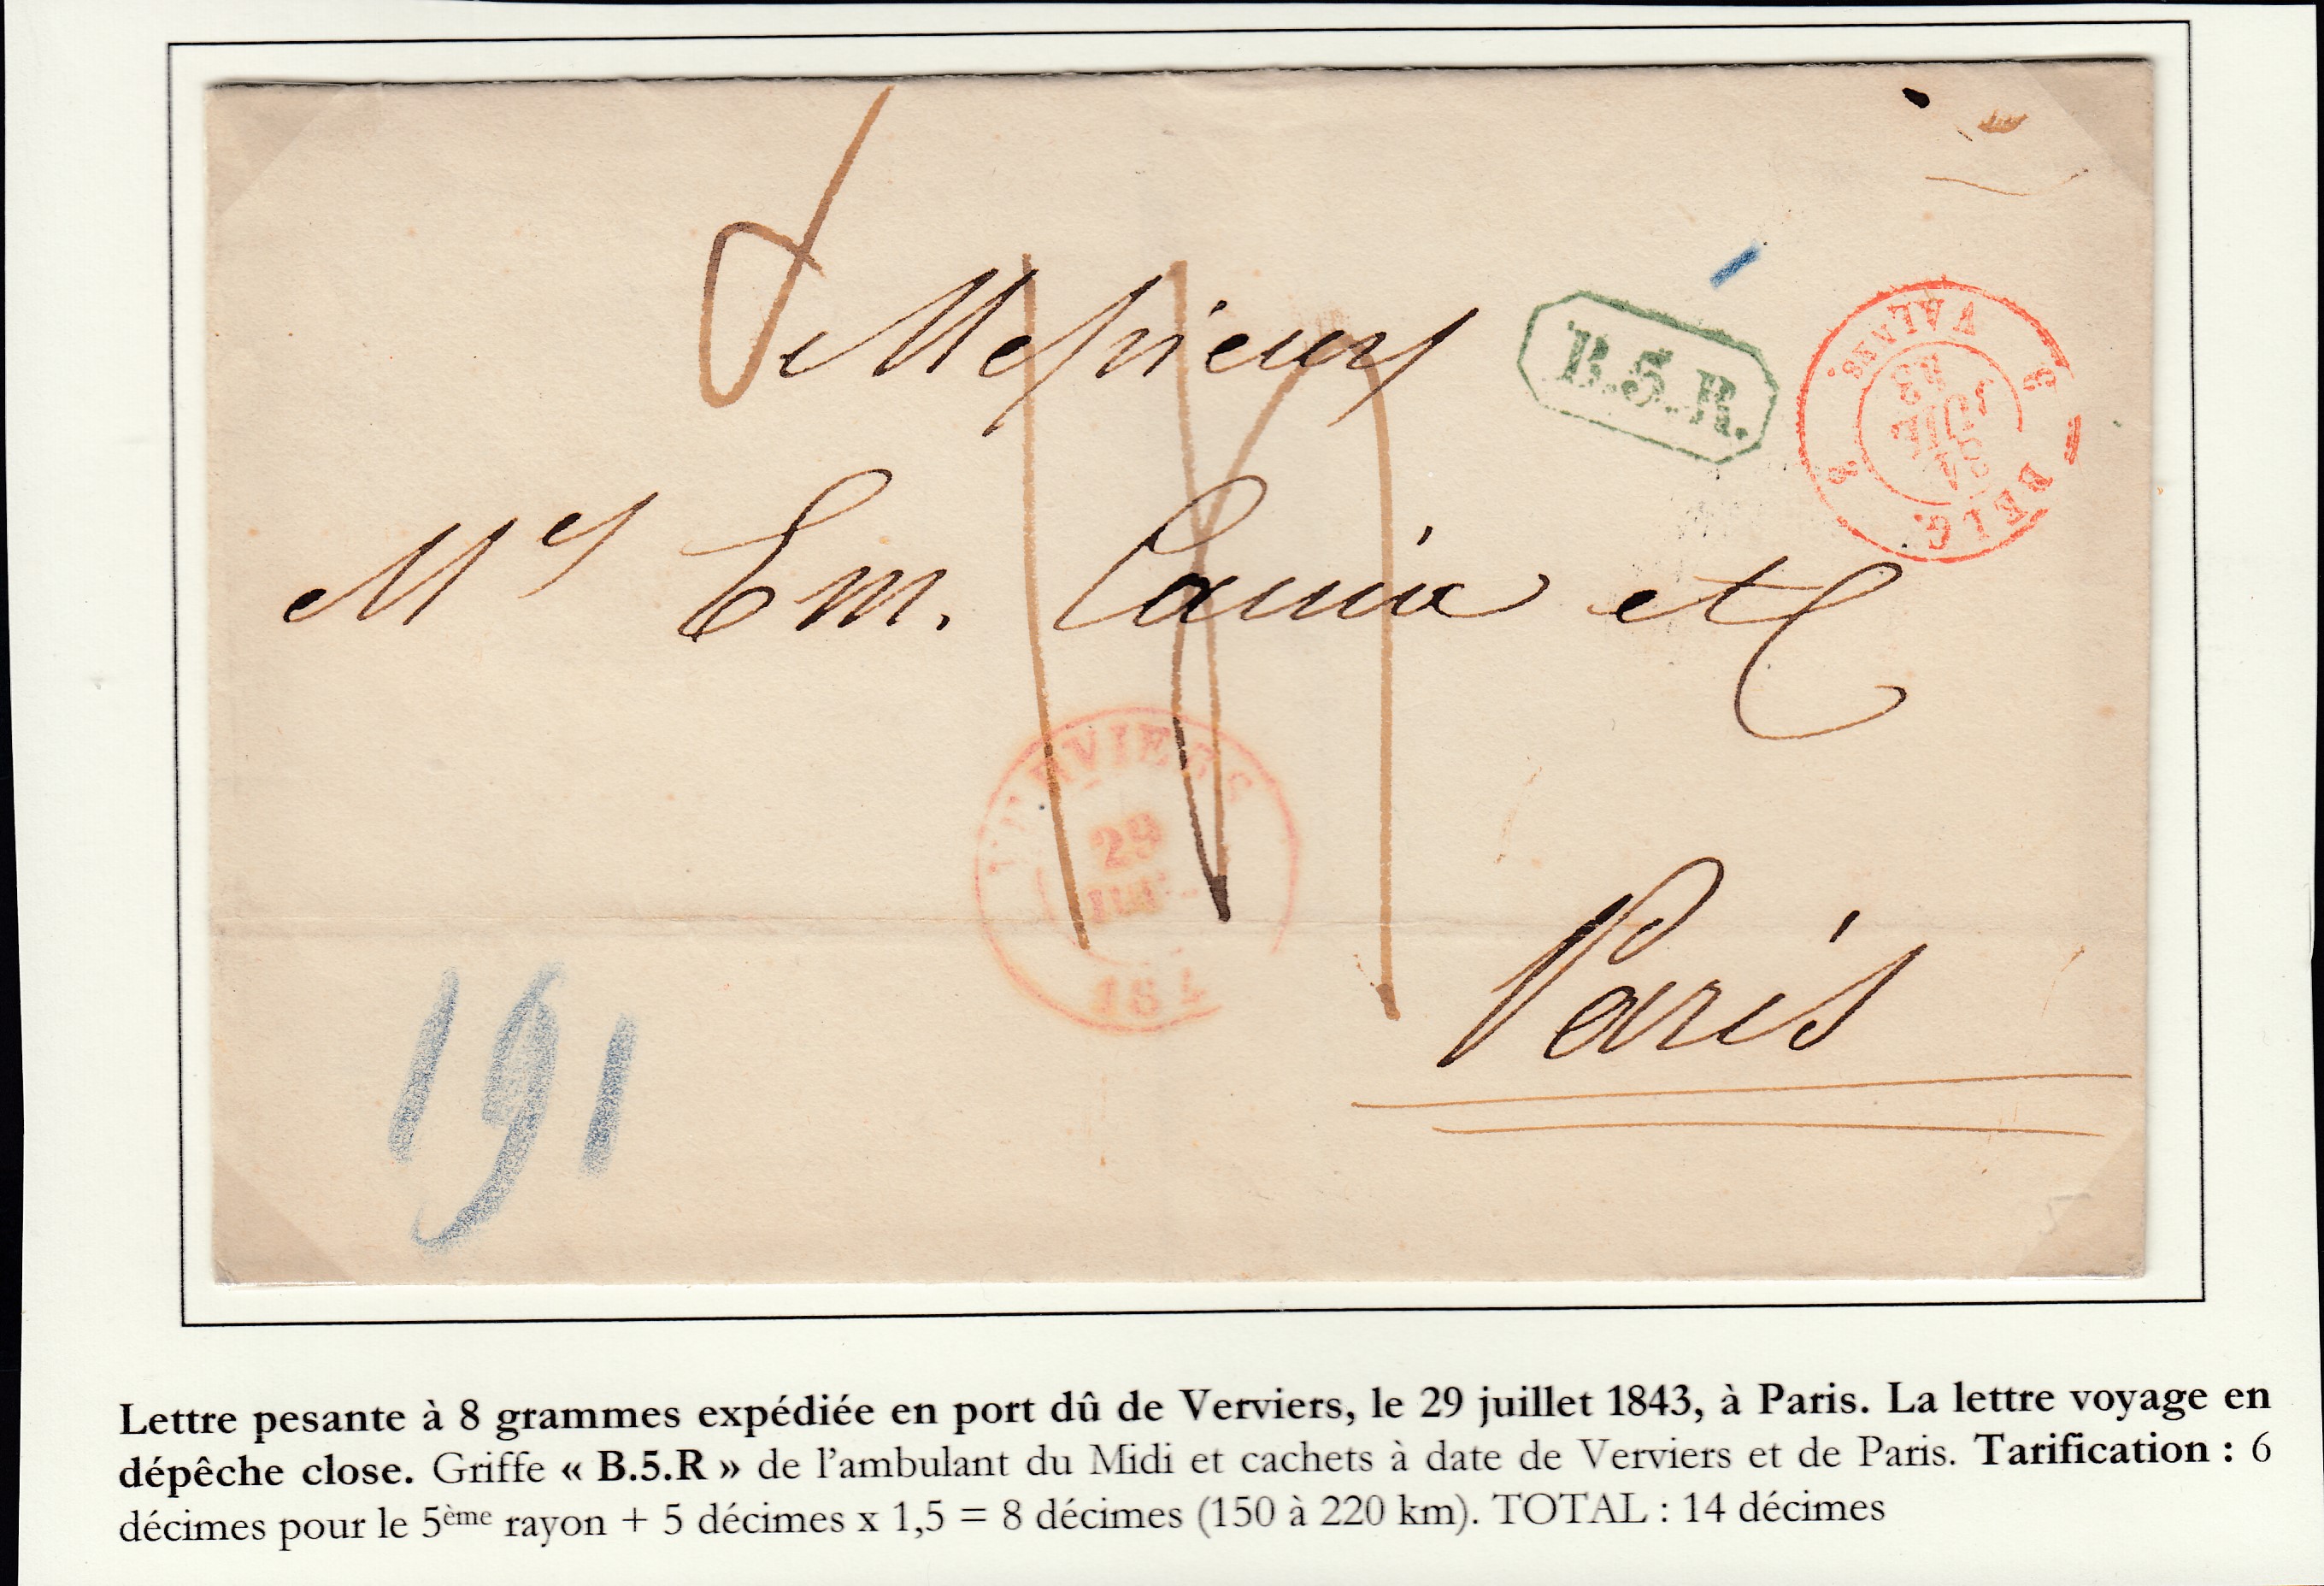 Messieurs
B.5.R.
VALNES
BELG.
Mrs Em. et C
VERVIERS
29
JUIL
184
Paris
191
Lettre pesante à 8 grammes expédiée en port dû de Verviers, le 29 juillet 1843, à Paris. La lettre voyage en
dépêche close. Griffe « B.5.R » de l'ambulant du Midi et cachets à date de Verviers et de Paris. Tarification : 6
décimes pour le 5ème rayon + 5 décimes x 1,5 = 8 décimes (150 à 220 km). TOTAL : 14 décimes